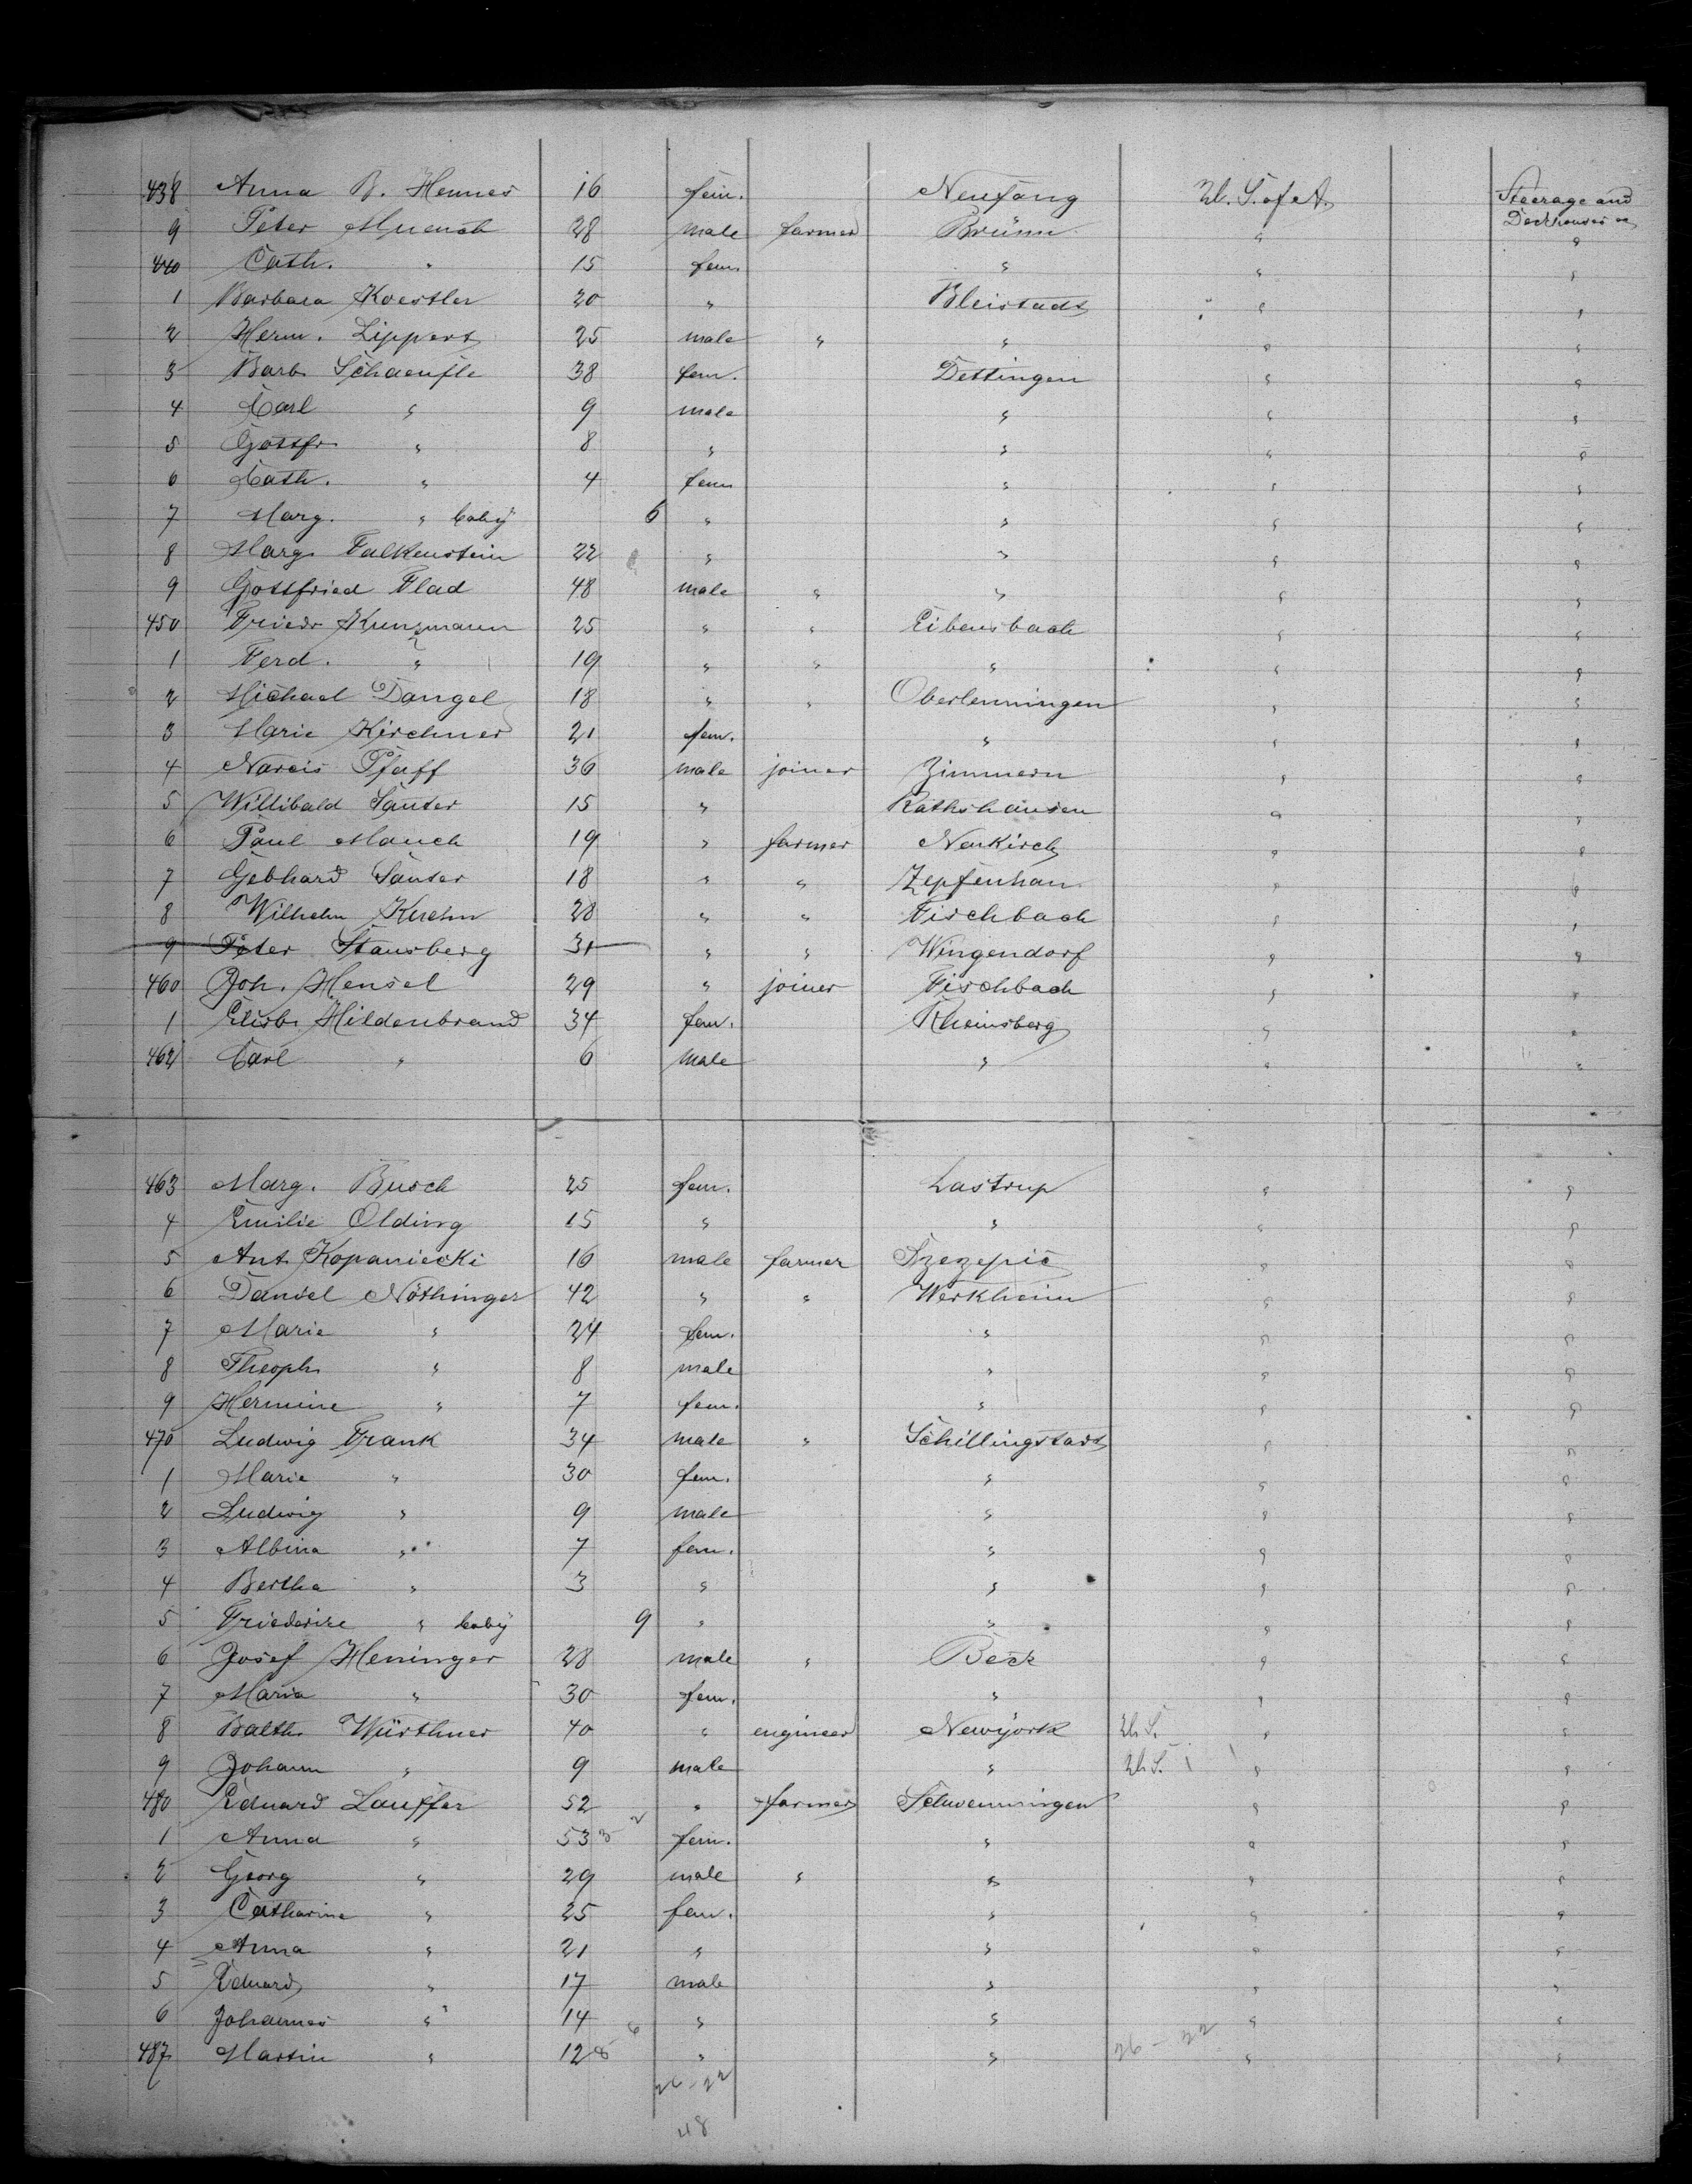 438 Anna B. Hennes 16 fem. Neufang U. S. of A. Steerage and Deckhouses
9 Peter Muench 28 male farmer Brünn " "
440 Cath. " 15 fem. " " "
1 Barbara Koestler 20 " Bleistadt " "
2 Herm. Lippert 25 male " " " "
3 Barb. Schaeufle 38 fem. Dettingen " "
4 Carl " 9 male " " "
5 Gottfr. " 8 " " " "
6 Cath. " 4 fem " " "
7 Marg. " baby 6 " " " "
8 Marg. Falkenstein 22 " " " "
9 Gottfried Flad 48 male " " " "
450 Friedr. Kunzmann 25 " " Eibensbach " "
1 Ferd. " 19 " " " " "
2 Michael Dangel 18 " " Oberlenningen " "
3 Marie Kirchner 21 fem. " " "
4 Narcis Pfaff 36 male joiner Zimmern " "
5 Willibald Sauter 15 " Rathshausen " "
6 Paul Mauch 19 " farmer Neukirch " "
7 Gebhard Sauter 18 " " Zepfenhan " "
8 Wilhelm Kuehn 28 " " Fischbach " "
9 Peter Stausberg 31 " " Wingendorf " "
460 Joh. Hensel 29 " joiner Fischbach " "
1 Elisb. Hildenbrand 34 fem. Rheinsberg " "
462 Carl " 6 male " " "
463 Marg. Busch 25 fem. Lastrup " "
4 Emilie Olding 15 " " " "
5 Ant. Kopaniecki 16 male farmer Szezepic " "
6 Daniel Nöthinger 42 " " Werkheim " "
7 Marie " 24 fem. " " "
8 Theoph. " 8 male " " "
9 Hermine " 7 fem. " " "
470 Ludwig Frank 34 male " Schillingstadt " "
1 Marie " 30 fem. " " "
2 Ludwig " 9 male " " "
3 Albina " 7 fem. " " "
4 Bertha " 3 " " " "
5 Friederike " baby 9 " " " "
6 Josef Heninger 28 male " Beck " "
7 Maria " 30 fem. " " "
8 Balth. Würthner 40 " engineer Newyork U. S. " "
9 Johann " 9 male " U. S. " "
480 Eduard Lauffer 52 " farmer Schwenningen " "
1 Anna " 53 fem. " " "
2 Georg " 29 male " " " "
3 Catharine " 25 fem. " " "
4 Anna " 21 " " " "
5 Eduard " 17 male " " "
6 Johannes " 14 " " " "
487 Martin " 12 " " 26 - 22 " "
26 - 22
48